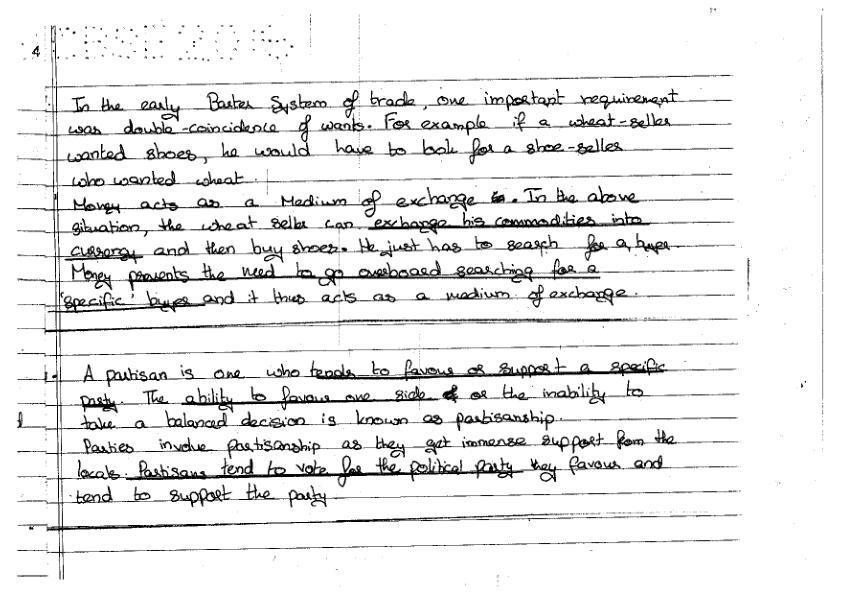 CBSE 2016
4
In the early Barter System of trade, one important requirement
was double-coincidence of wants. For example if a wheat-seller
wanted shoes, he would have to look for a shoe-seller
who wanted wheat.
Money acts as a Medium of exchange. In the above
situation, the wheat seller can exchange his commodities into
currency and then buy shoes. He just has to search for a buyer.
Money prevents the need to go overboard searching for a
'specific' buyer and it thus acts as a medium of exchange.
A partisan is one who tends to favour or support a specific
party. The ability to favour one side or the inability to
take a balanced decision is known as partisanship.
Parties involve partisanship as they get immense support from the
locals. Partisans tend to vote for the political party they favour and
tend to support the party